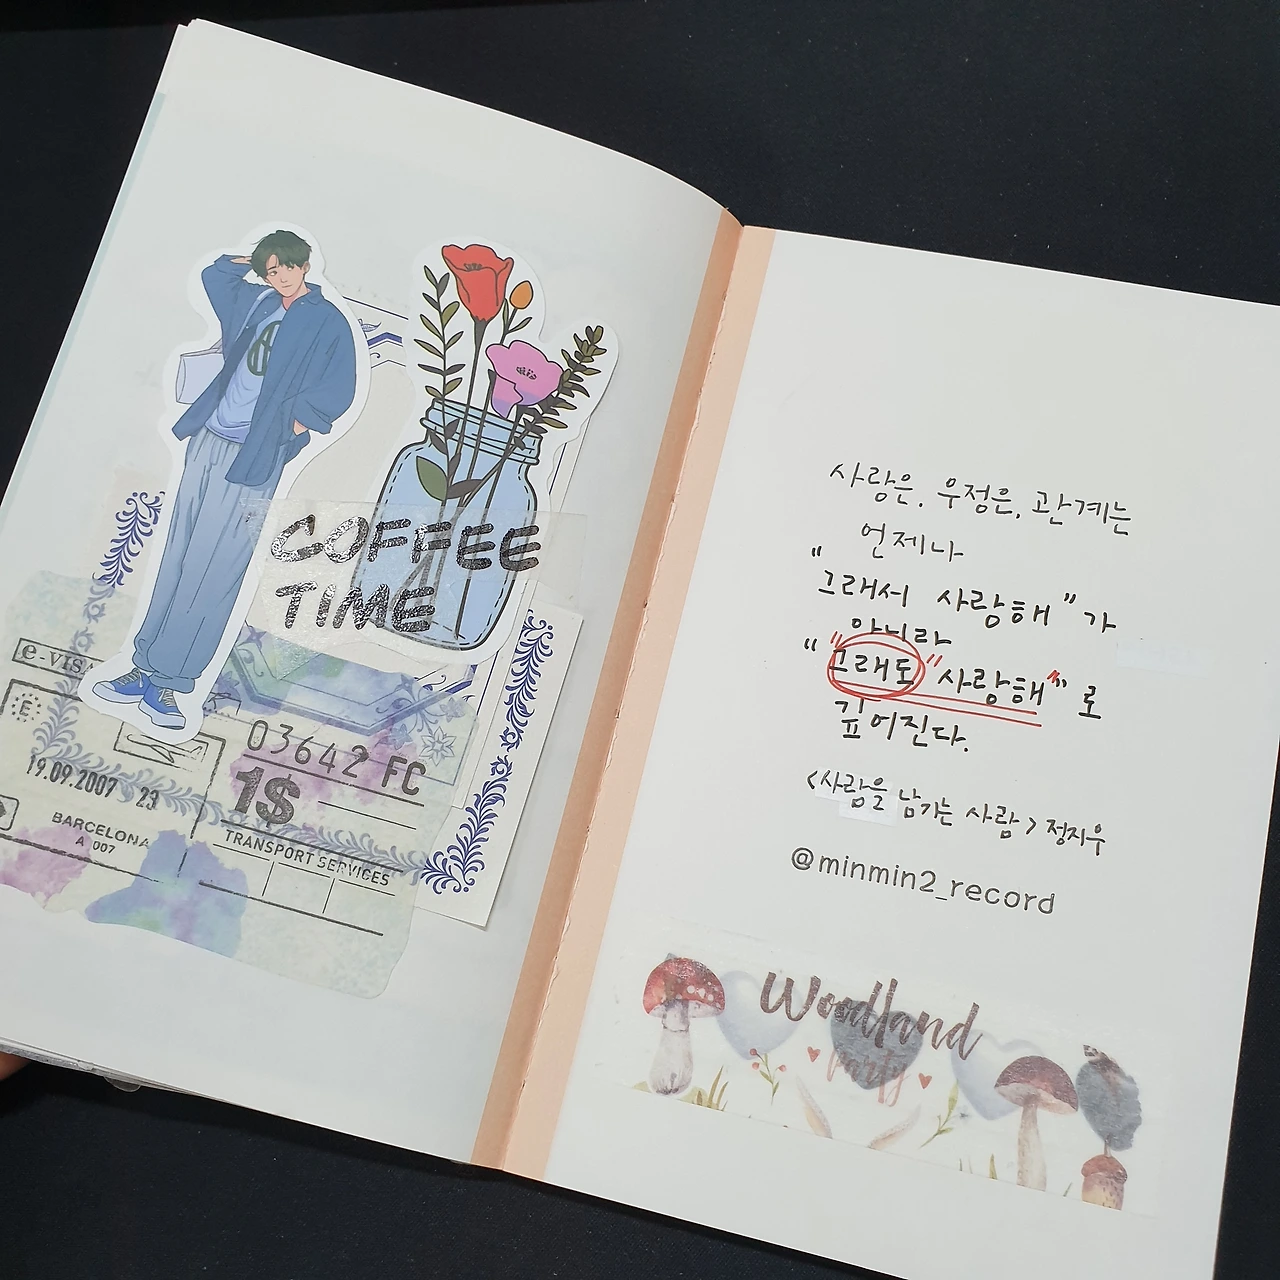 COFFEE
TIME
e-VISA
E
03642 FC
1$
19.09.2007 23
BARCELONA
A 007
TRANSPORT SERVICES
사랑은, 우정은, 관계는
언제나
"그래서 사랑해"가
아니라
"그래도" 사랑해"로
깊어진다.
<사람을 남기는 사람> 정지우
@minmin2_record
Woodland
Party